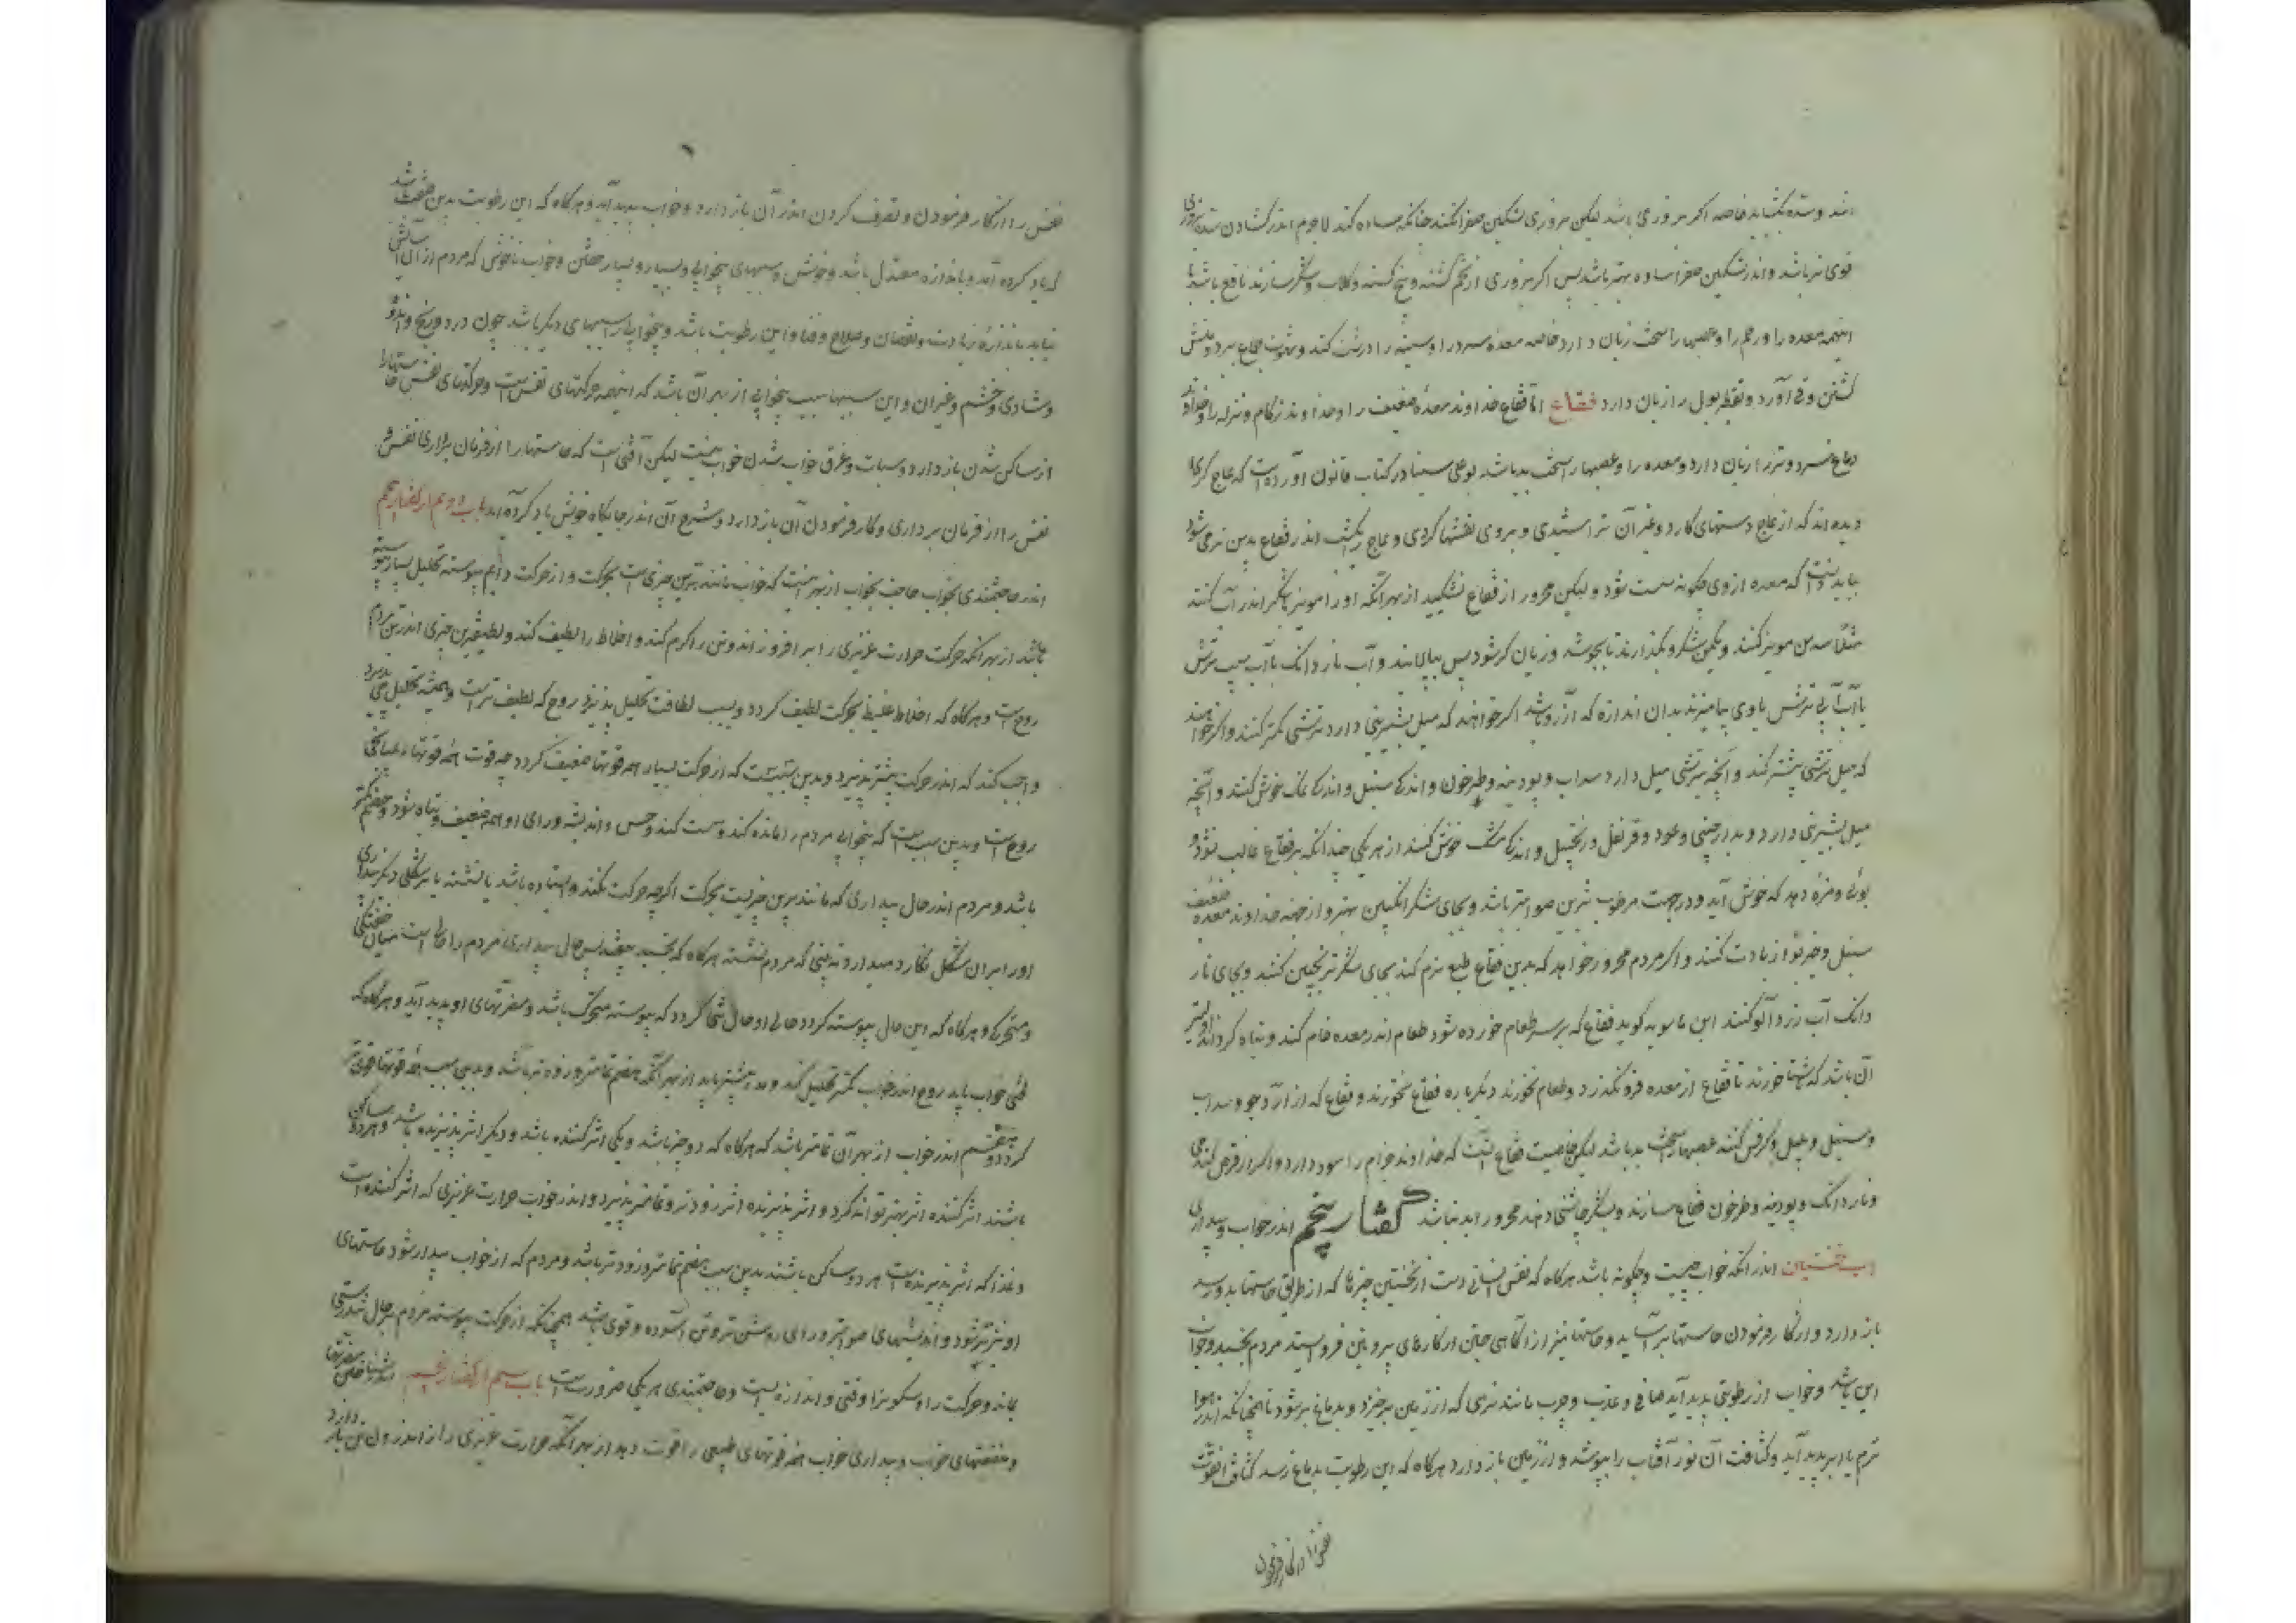 اشد وسده بکشاید خاصه اکر بزوری باشد لیکن بزوری تسکین صفرا نکند چنانکه ساده کند لاجرم اندر کشادن سده بزوری
قوی تر باشد و اندر تسکین صفرا ساده بهتر باشد پس اکر بزوری از تخم کشنه و بیخ کسنه و کلاب و شکر سازند نافع باشد با
اینهمه معده را و رحم را و عصبها را سخت زیان دارد خاصه معده سرد را و سینه را درشت کند و شهوت جماع ببرد و منش
کشتن و قی آورد و تقطیر بول را زیان دارد فقاع اما فقاع خداوند معده ضعیف را و خداوند زکام و نزله را و خداوند
دماغ سرد و تر را زیان دارد و معده را و عصبها را سخت بد باشد بوعلی سینا در کتاب قانون آورده است که عاج کران
دیده اند که از عاج دستهای کارد و غیر آن تراشیدی و بروی نقشها کردی و عاج یکشب اندر فقاع بدین نرم می شود
بباید دانست که معده از وی چکونه سست شود و لیکن محرور از فقاع نشکیبد از بهر آنکه او را مویز با شکر اندر آب کنند
مثلا سه من مویز کنند و یکمن شکر و بکذارند تا بجوشد و زبان کز شود پس بپالایند و آب نار دانک با آب سیب ترش
یا آب آبی ترش با وی بیامیزند بدان اندازه که آرزو باشد اکر خواهند که میل بشیرینی دارد ترشی کمتر کنند و اکر خواهند
که میل بترشی بیشتر کند و آنچه بترشی میل دارد سداب و پودینه و طرخون و اندکی سنبل و اندکی نمک خوش کنند و آنچه
میل بشیرینی دارد و بدارچینی و عود و قرنفل و زنجبیل و اندکی مشک خوش کنند از هر یکی چندانکه بر فقاع غالب نشود و
بوئی و مزه دهد که خوش آید و درجهت مرطوب ترین صوابتر باشد و بجای شکر انکبین بهتر و از جهت خداوند معده ضعیف
سنبل و خیربوا زیادت کنند و اکر مردم محرور خواهد که بدین فقاع طبع نرم کند بجای شکر ترنجبین کنند و بجای نار
دانک آب زردآلو کنند ابن ماسویه کوید فقاع که بر سر طعام خورده شود طعام اندر معده خام کند و تباه کرداند و بهتر
آن باشد که ناشتا خورند تا فقاع از معده فرو نکذرد و طعام نخورند دیکر باره فقاع نخورند و فقاع که از آرد جو و سداب
و سنبل و کرفس کنند عصبها را سخت بد باشد لیکن خاصیت فقاع آنست که خداوند جذام را سود دارد و اکر از قرص کندمی
و ناردانک و پودینه و طرخون فقاع سازند و بشکر چاشنی دهند محرور را بد نباشد گفتار پنجم اندر خواب و بیداری
باب نخستین اندر آنکه خواب چیست و چکونه باشد هرکاه که نفس انسانی دست از نخستین چیزها که از طریق حاستها بدو رسد
باز دارد و از کار فرمودن حاستها برآساید و حاستها نیز از آکاهی جستن از کارهای بیرونین فرو ایستد مردم بخسبد و خواب
این باشد و خواب از رطوبتی پدید آید صافی و عذب و چرب مانند نرمی که از زمین برخیزد و بدماغ بر شود تا همچنانکه اندر هوا
نرم یا ابر پدید آید و کثافت آن نور آفتاب را بپوشد و از زمین باز دارد هرکاه که این رطوبت بدماغ رسد کثافت آن قوت
نفس را از کار فرمودن و تصرف کردن اندر آن باز دارد و خواب پدید آید و هرکاه که این رطوبت بدین صفت باشد
که یاد کرده آمد و باندازه معتدل باشد و خوش و سببهای بیخوابی و بسیار و بسیار خفتن و خواب ناخوش که مردم از آن آسایش
نیابد باندازه زیادت و نقصان و صلاح و فساد این رطوبت باشد و بیخوابی را سببهای دیکر باشد چون درد و رنج و اندوه
و شادی و خشم و غیر آن و این سببها سبب بیخوابی از بهر آن باشد که اینهمه حرکتهای نفس است و حرکتهای نفس حاستها را
از ساکن شدن باز دارد و سبات و غرق خواب شدن خواب نیست لیکن آفتی است که حاستها را از فرمان برداری نفس و
نفس را از فرمان برداری و کار فرمودن آن باز دارد و شرح آن اندر جایکاه خویش یاد کرده آمد باب دوم از گفتار پنجم
اندر حاجتمندی بخواب حاجت بخواب از بهر آنست که خواب مانند ترین چیزی است بحرکت و از حرکت دایم پیوسته تحلیل بسیار
باشد از بهر آنکه حرکت حرارت غریزی را برافروزاند و تن را کرم کند و اخلاط را لطیف کند و لطیفترین چیزی اندر تن مردم
روح است و هرکاه که اخلاط غلیظ بحرکت لطیف کردد و بسبب لطافت تحلیل پذیرد روح که لطیف تر است و همیشه تحلیل می پذیرد
واجب کند که اندر حرکت بیشتر پذیرد و بدین سببست که از حرکت بسیار همه قوتها ضعیف کردد چه قوت همه قوتها
روح است و بدین سبب است که بیخوابی مردم را مانده کند و سست کند و حس و اندیشه و رای او همه ضعیف و تباه شود و هضم کمتر
باشد و مردم اندر حال بیداری که مانندترین چیزیست بحرکت اکرچه حرکت نکند و ایستاده باشد یا نشسته یا بر شکلی دیکر بیداری
او را بر آن شکل نکاه میدارد نه بینی که مردم نشسته هرکاه که بخسبد بیفتد پس حال بیداری مردم را حالی است میان خفتکی
و متحرکی و هرکاه که این حال پیوسته کردد حالی او حال کردد که پیوسته متحرک باشد و مضرتهای او پدید آید و هرکاه که
خواب یابد روح اندر خواب کمتر تحلیل کند و مدد بیشتر یابد از بهر آنکه هضم تمامتر و زودتر باشد و بدین سبب همه قوتها قوی تر
کردد و هضم اندر خواب از بهر آن تمامتر باشد که هرکاه که دو چیز باشد و یکی اثر کننده باشد و دیکر اثر پذیرنده باشد و هر دو ساکن
باشند اثر کننده اثر بهتر تواند کرد و اثر پذیرنده اثر زودتر و تمامتر پذیرد و اندر خواب حرارت غریزی که اثر کننده است
و غذا که اثر پذیرنده است هر دو ساکن باشند بدین سبب هضم تمامتر و زودتر باشد و مردم که از خواب بیدار شود حاستهای
او تیزتر شود و اندیشهای صوابتر و رای روشن تر و تن آسوده و قوی باشد همچنانکه از حرکت پیوسته مردم بر حال تندرستی
نماند و حرکت را و سکون را وقتی و اندازه ایست و حاجتمندی بهر یکی ضرورت است باب سیم از گفتار پنجم اندر شناختن مضرتها
و منفعتهای خواب و بیداری خواب همه قوتهای طبیعی را قوت دهد از بهر آنکه حرارت غریزی را از اندرون تن باز دارد